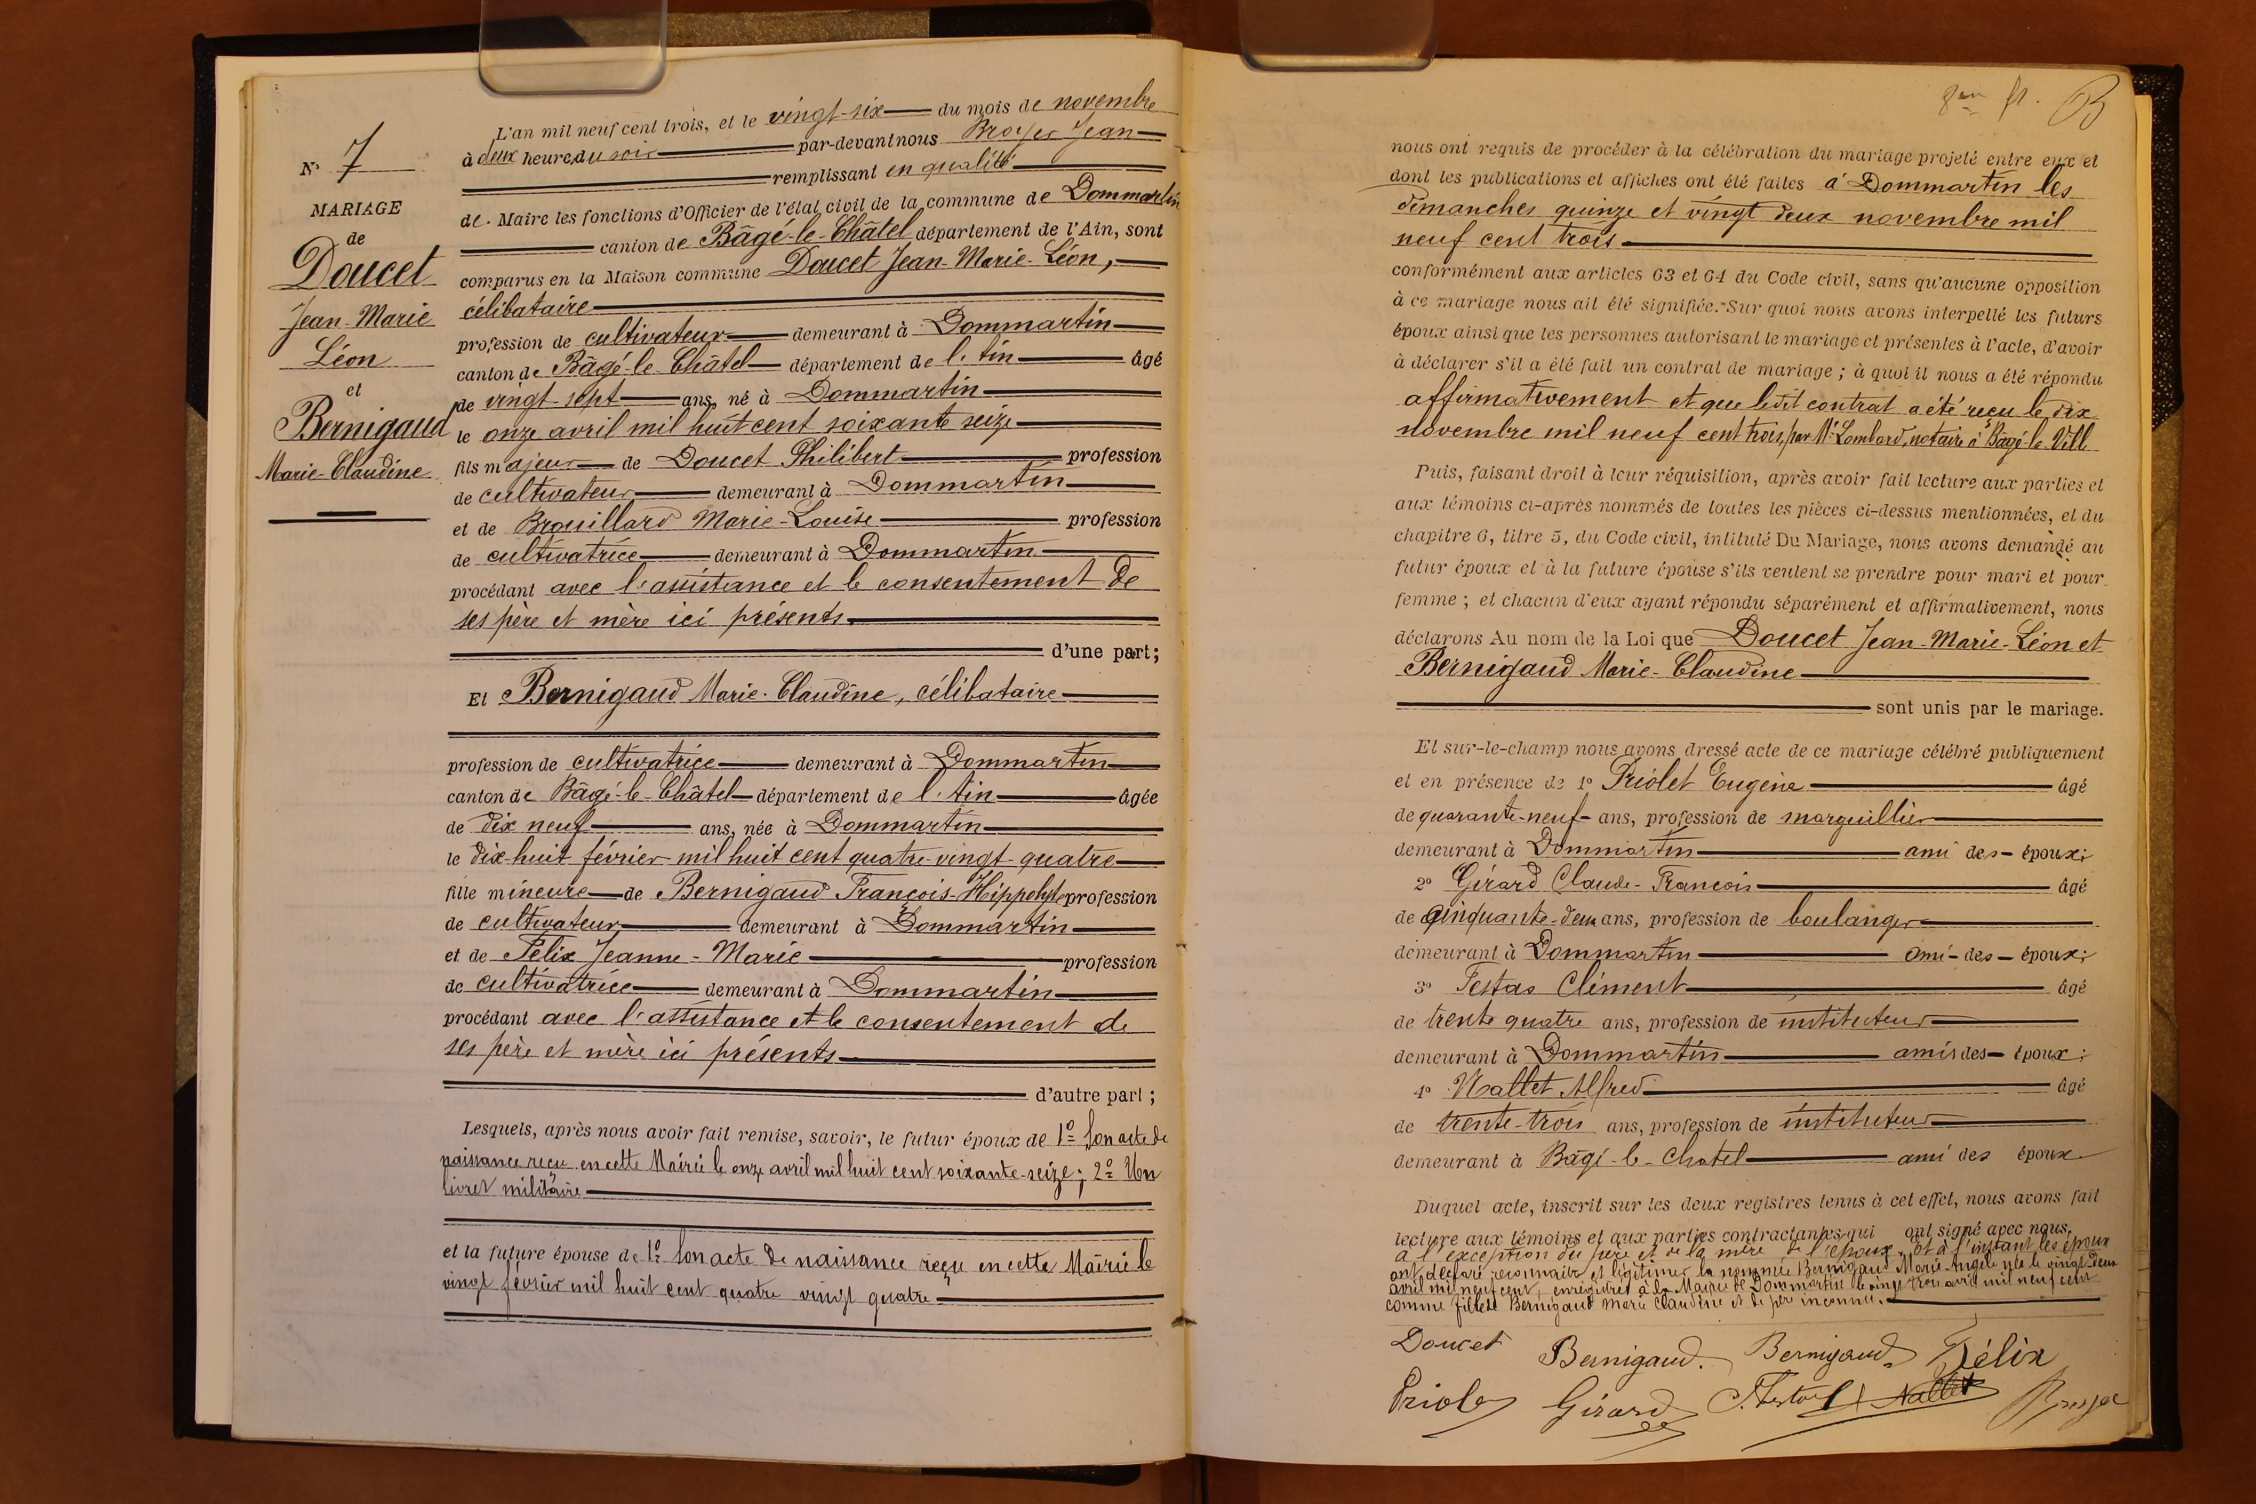 N° 7
MARIAGE
de
Doucet
Jean-Marie
Léon
et
Bernigaud
Marie-Claudine
L'an mil neuf cent trois, et le vingt-six du mois de novembre
à deux heures du soir par-devant nous Broyer Jean
remplissant en qualité
de Maire les fonctions d'Officier de l'état civil de la commune de Dommartin
canton de Bâgé-le-Châtel département de l'Ain, sont
comparus en la Maison commune Doucet Jean-Marie-Léon,
célibataire
profession de cultivateur demeurant à Dommartin
canton de Bâgé-le-Châtel département de l'Ain âgé
de vingt-sept ans, né à Dommartin
le onze avril mil huit cent soixante seize
fils majeur de Doucet Philibert profession
de cultivateur demeurant à Dommartin
et de Brouillard Marie-Louise profession
de cultivatrice demeurant à Dommartin
procédant avec l'assistance et le consentement de
ses père et mère ici présents
d'une part;
Et Bernigaud Marie-Claudine, célibataire
profession de cultivatrice demeurant à Dommartin
canton de Bâgé-le-Châtel département de l'Ain âgée
de dix neuf ans, née à Dommartin
le dix-huit février mil huit cent quatre-vingt-quatre
fille mineure de Bernigaud François-Hippolyte profession
de cultivateur demeurant à Dommartin
et de Félix Jeanne-Marie profession
de cultivatrice demeurant à Dommartin
procédant avec l'assistance et le consentement de
ses père et mère ici présents
d'autre part;
Lesquels, après nous avoir fait remise, savoir, le futur époux de 1° Son acte de
naissance reçu en cette Mairie le onze avril mil huit cent soixante-seize; 2° Un
livret militaire
et la future épouse de 1° Son acte de naissance reçu en cette Mairie le
vingt février mil huit cent quatre vingt quatre
B
nous ont requis de procéder à la célébration du mariage projeté entre eux et
dont les publications et affiches ont été faites à Dommartin les
dimanches quinze et vingt deux novembre mil
neuf cent trois
conformément aux articles 63 et 64 du Code civil, sans qu'aucune opposition
à ce mariage nous ait été signifiée. Sur quoi nous avons interpellé les futurs
époux ainsi que les personnes autorisant le mariage et présentes à l'acte, d'avoir
à déclarer s'il a été fait un contrat de mariage; à quoi il nous a été répondu
affirmativement et que ledit contrat a été reçu le dix
novembre mil neuf cent trois, par Me Lombard, notaire à Bâgé-la-Ville
Puis, faisant droit à leur réquisition, après avoir fait lecture aux parties et
aux témoins ci-après nommés de toutes les pièces ci-dessus mentionnées, et du
chapitre 6, titre 5, du Code civil, intitulé Du Mariage, nous avons demandé au
futur époux et à la future épouse s'ils veulent se prendre pour mari et pour
femme; et chacun d'eux ayant répondu séparément et affirmativement, nous
déclarons Au nom de la Loi que Doucet Jean-Marie-Léon et
Bernigaud Marie-Claudine
sont unis par le mariage.
Et sur-le-champ nous avons dressé acte de ce mariage célébré publiquement
et en présence de 1° Priolet Eugène âgé
de quarante-neuf ans, profession de marguillier
demeurant à Dommartin ami des époux;
2° Girard Claude-François âgé
de cinquante-deux ans, profession de boulanger
demeurant à Dommartin ami des époux;
3° Testas Clément âgé
de trente quatre ans, profession de instituteur
demeurant à Dommartin amis des époux;
4° Nallet Alfred âgé
de trente-trois ans, profession de instituteur
demeurant à Bâgé-le-Chatel ami des époux
Duquel acte, inscrit sur les deux registres tenus à cet effet, nous avons fait
lecture aux témoins et aux parties contractantes qui ont signé avec nous,
à l'exception du père et de la mère de l'époux. Et à l'instant les époux
ont déclaré reconnaître et légitimer la nommée Bernigaud Marie-Angèle née le vingt-deux
avril mil neuf cent, enregistrée à la Mairie de Dommartin le vingt trois avril mil neuf cent
comme fille de Bernigaud Marie Claudine et de père inconnu.
Doucet Bernigaud. Bernigaud Félix
Priolet Girard Testas Nallet Broyer